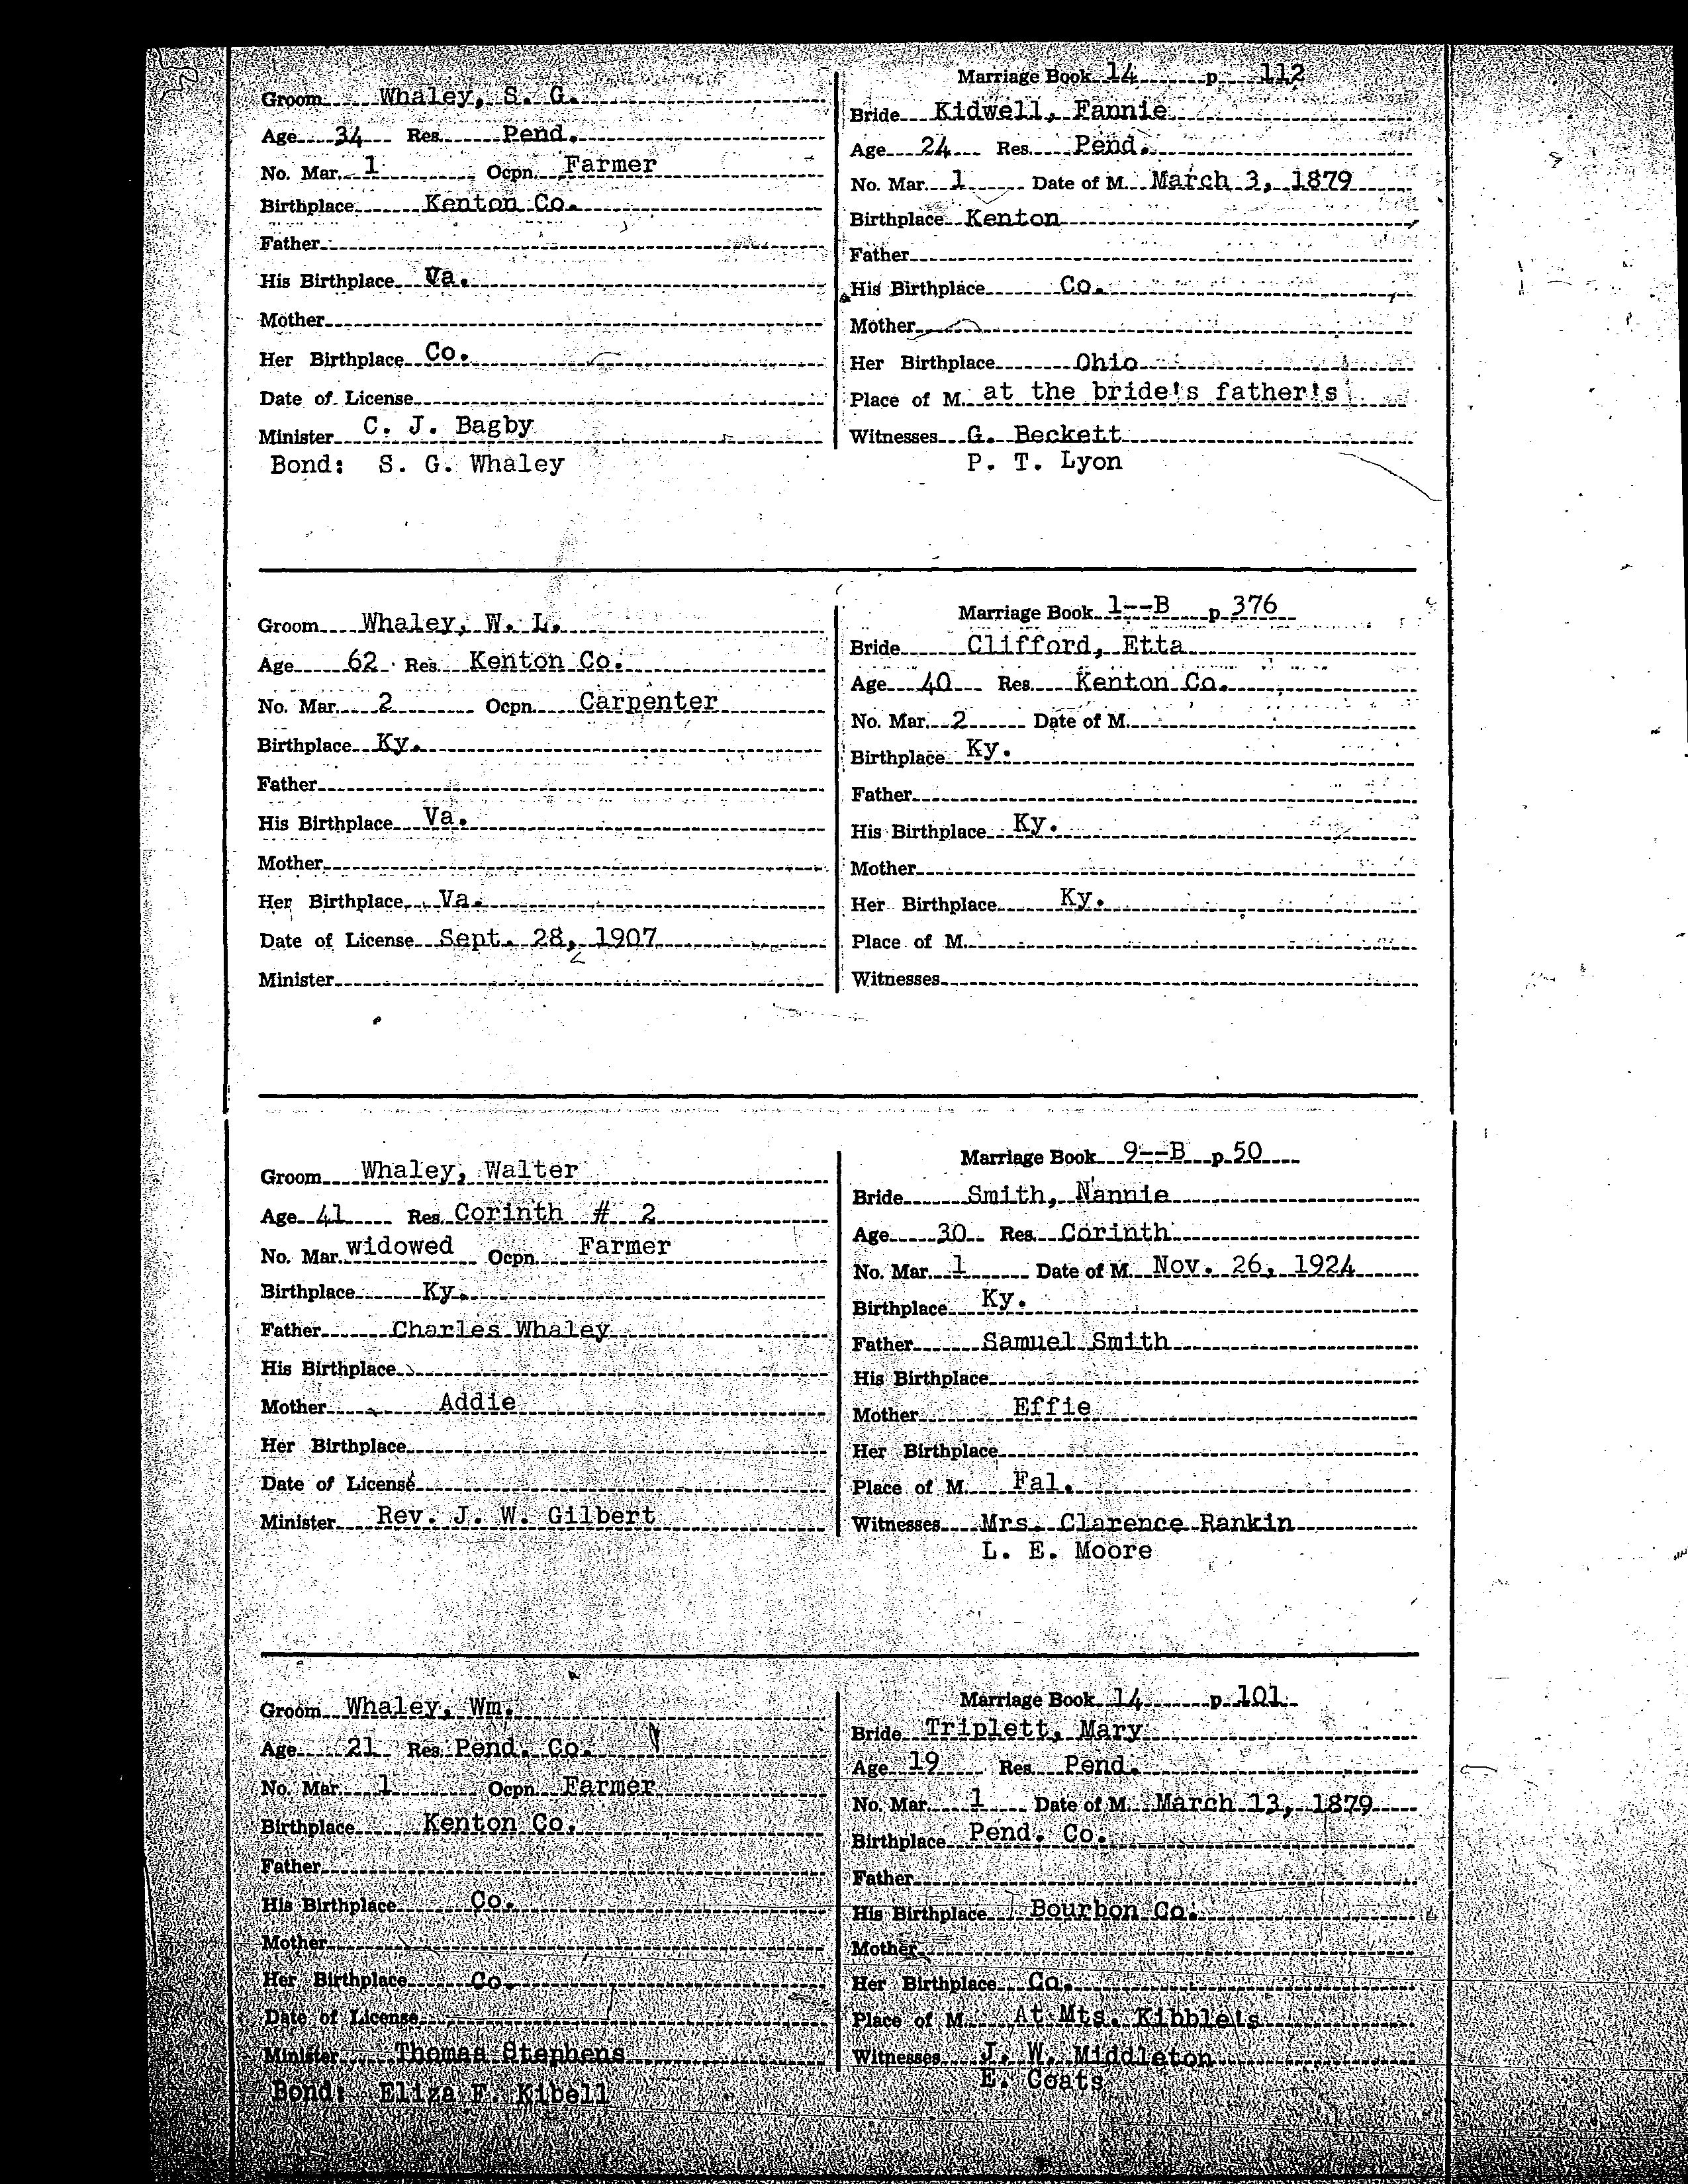 Groom Whaley, S. G.
Age 34 Res. Pend.
No. Mar. 1 Ocpn. Farmer
Birthplace Kenton Co.
Father
His Birthplace Va.
Mother
Her Birthplace Co.
Date of License
Minister C. J. Bagby
Bond: S. G. Whaley
Marriage Book 14 p 112
Bride Kidwell, Fannie
Age 24 Res. Pend.
No. Mar. 1 Date of M. March 3, 1879
Birthplace Kenton
Father
His Birthplace Co.
Mother
Her Birthplace Ohio
Place of M. at the bride's father's
Witnesses G. Beckett
P. T. Lyon
Groom Whaley, W. L.
Age 62 Res. Kenton Co.
No. Mar. 2 Ocpn. Carpenter
Birthplace Ky.
Father
His Birthplace Va.
Mother
Her Birthplace Va.
Date of License Sept. 28, 1907
Minister
Marriage Book 1--B p 376
Bride Clifford, Etta
Age 40 Res. Kenton Co.
No. Mar. 2 Date of M.
Birthplace Ky.
Father
His Birthplace Ky.
Mother
Her Birthplace Ky.
Place of M.
Witnesses
Groom Whaley, Walter
Age 41 Res. Corinth # 2
No. Mar. widowed Ocpn. Farmer
Birthplace Ky.
Father Charles Whaley
His Birthplace
Mother Addie
Her Birthplace
Date of License
Minister Rev. J. W. Gilbert
Marriage Book 9--B p 50
Bride Smith, Nannie
Age 30 Res. Corinth
No. Mar. 1 Date of M. Nov. 26, 1924
Birthplace Ky.
Father Samuel Smith
His Birthplace
Mother Effie
Her Birthplace
Place of M. Fal.
Witnesses Mrs. Clarence Rankin
L. E. Moore
Groom Whaley, Wm.
Age 21 Res. Pend. Co.
No. Mar. 1 Ocpn. Farmer
Birthplace Kenton Co.
Father
His Birthplace Co.
Mother
Her Birthplace Co.
Date of License
Minister Thomas Stephens
Bond: Eliza F. Kibell
Marriage Book 14 p 101
Bride Triplett, Mary
Age 19 Res. Pend.
No. Mar. 1 Date of M. March 13, 1879
Birthplace Pend. Co.
Father
His Birthplace Bourbon Co.
Mother
Her Birthplace Co.
Place of M. At Mts. Kibble's
Witnesses J. W. Middleton
E. Coats